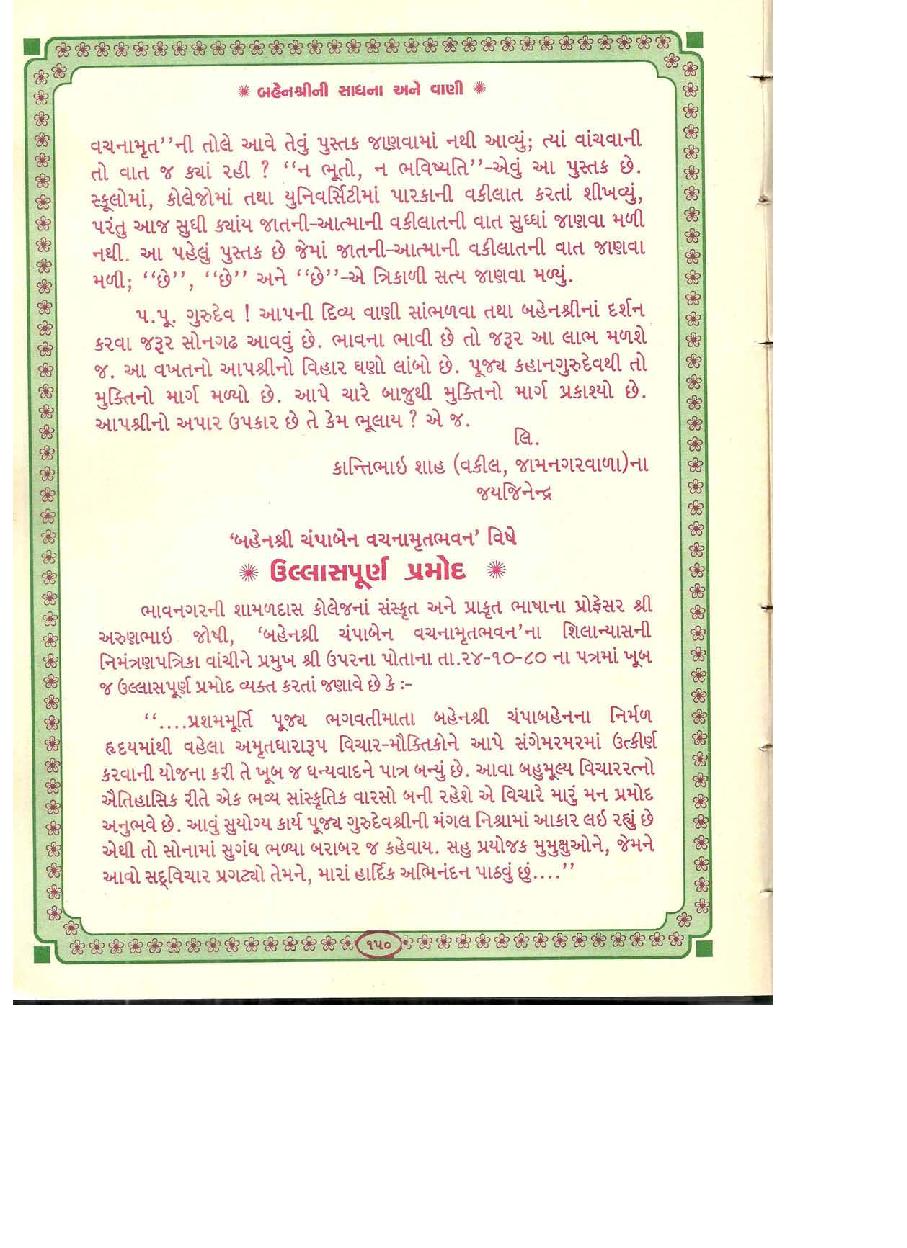 બહેનશ્રીની સાધના અને વાણી
વચનામૃત’’ની તોલે આવે તેવું પુસ્તક જાણવામાં નથી આવ્યું; ત્યાં વાંચવાની
તો વાત જ ક્યાં રહી ? ‘‘ન ભૂતો, ન ભવિષ્યતિ’’-એવું આ પુસ્તક છે.
સ્કૂલોમાં, કોલેજોમાં તથા યુનિવર્સિટીમાં પારકાની વકીલાત કરતાં શીખવ્યું,
પરંતુ આજ સુધી ક્યાંય જાતની-આત્માની વકીલાતની વાત સુધ્ધાં જાણવા મળી
નથી. આ પહેલું પુસ્તક છે જેમાં જાતની-આત્માની વકીલાતની વાત જાણવા
મળી; ‘‘છે’’, ‘‘છે’’ અને ‘‘છે’’-એ ત્રિકાળી સત્ય જાણવા મળ્યું.
પ.પૂ. ગુરુદેવ ! આપની દિવ્ય વાણી સાંભળવા તથા બહેનશ્રીનાં દર્શન
કરવા જરૂર સોનગઢ આવવું છે. ભાવના ભાવી છે તો જરૂર આ લાભ મળશે
જ. આ વખતનો આપશ્રીનો વિહાર ઘણો લાંબો છે. પૂજ્ય કહાનગુરુદેવથી તો
મુક્તિનો માર્ગ મળ્યો છે. આપે ચારે બાજુથી મુક્તિનો માર્ગ પ્રકાશ્યો છે.
આપશ્રીનો અપાર ઉપકાર છે તે કેમ ભૂલાય ? એ જ.
લિ.
કાન્તિભાઇ શાહ (વકીલ, જામનગરવાળા)ના
જયજિનેન્દ્ર
‘બહેનશ્રી ચંપાબેન વચનામૃતભવન’ વિષે
ઉલ્લાસપૂર્ણ પ્રમોદ
ભાવનગરની શામળદાસ કોલેજનાં સંસ્કૃત અને પ્રાકૃત ભાષાના પ્રોફેસર શ્રી
અરુણભાઇ જોષી, ‘બહેનશ્રી ચંપાબેન વચનામૃતભવન’ના શિલાન્યાસની
નિમંત્રણપત્રિકા વાંચીને પ્રમુખ શ્રી ઉપરના પોતાના તા.૨૪-૧૦-૮૦ ના પત્રમાં ખૂબ
જ ઉલ્લાસપૂર્ણ પ્રમોદ વ્યક્ત કરતાં જણાવે છે કે :-
‘‘....પ્રશમમૂર્તિ પૂજ્ય ભગવતીમાતા બહેનશ્રી ચંપાબહેનના નિર્મળ
હૃદયમાંથી વહેલા અમૃતધારારૂપ વિચાર-મૌક્તિકોને આપે સંગેમરમરમાં ઉત્કીર્ણ
કરવાની યોજના કરી તે ખૂબ જ ધન્યવાદને પાત્ર બન્યું છે. આવા બહુમૂલ્ય વિચારરત્નો
ઐતિહાસિક રીતે એક ભવ્ય સાંસ્કૃતિક વારસો બની રહેશે એ વિચારે મારું મન પ્રમોદ
અનુભવે છે. આવું સુયોગ્ય કાર્ય પૂજ્ય ગુરુદેવશ્રીની મંગલ નિશ્રામાં આકાર લઇ રહ્યું છે
એથી તો સોનામાં સુગંધ ભળ્યા બરાબર જ કહેવાય. સહુ પ્રયોજક મુમુક્ષુઓને, જેમને
આવો સદ્‌વિચાર પ્રગટ્યો તેમને, મારાં હાર્દિક અભિનંદન પાઠવું છું....’’
૧૫૦